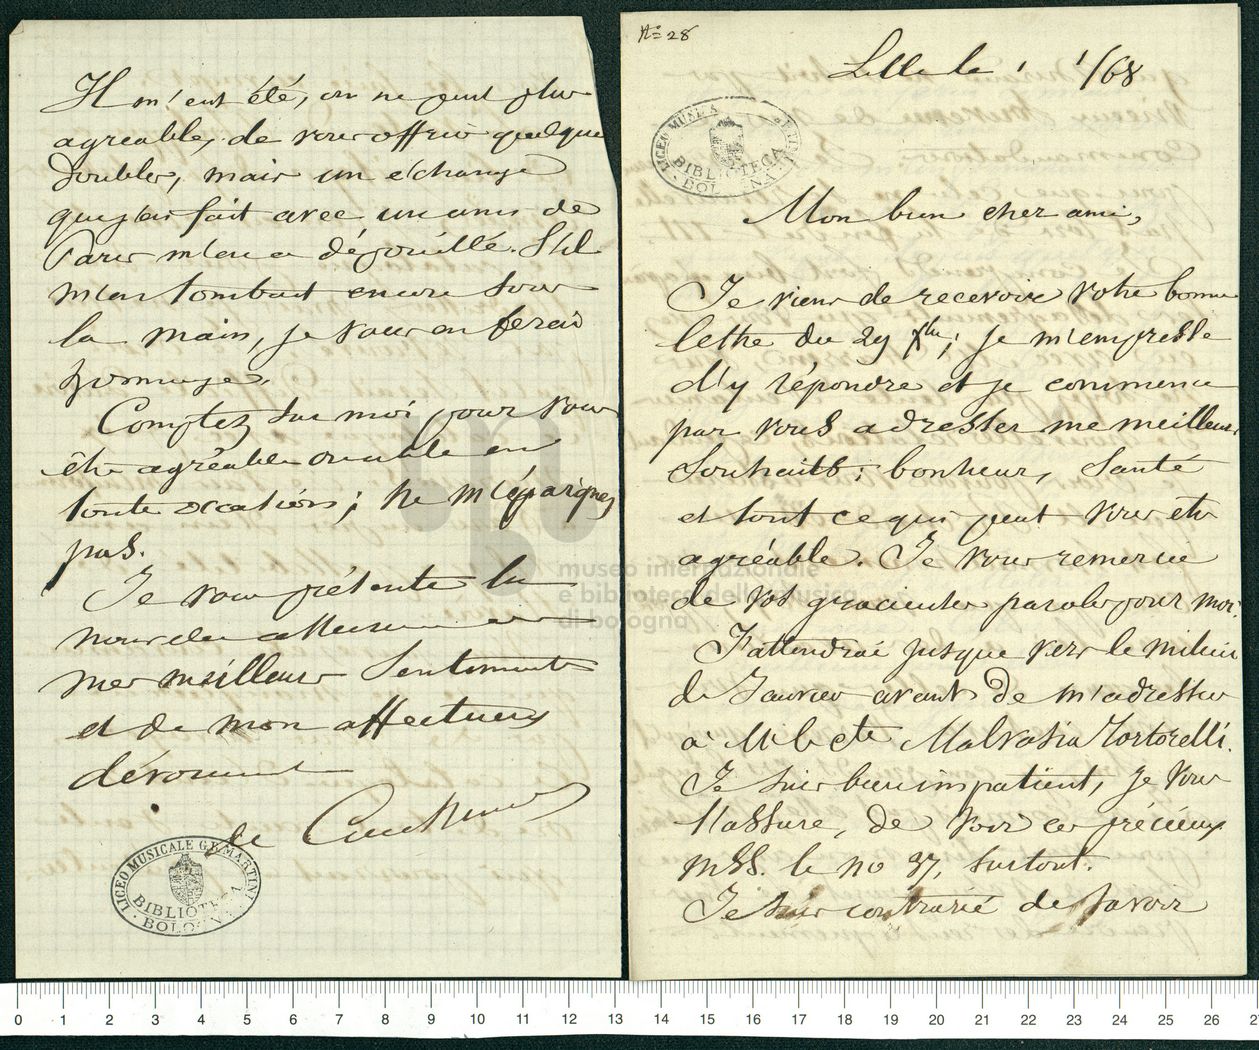 No 28
Lille le 1 1/68
LICEO MUSICALE
BIBLIOTECA
BOLOGNA
Mon bien cher ami,
Je viens de recevoir votre bonne
lettre du 29 Xbre; je m'empresse
d'y répondre et je commence
par vous adresser mes meilleurs
souhaits: bonheur, santé
et tout ce qui peut vous être
agréable. Je vous remercie
de vos gracieuses paroles pour moi.
J'attendrai jusque vers le milieu
de Janvier avant de m'adresser
à Mr le cte Malvasia Tortorelli.
Je suis bien impatient, je vous
l'assure, de voir ces précieux
MSS. le no 37, surtout.
Je suis contrarié de savoir
Il m'eut été, on ne peut plus
agréable, de vous offrir quelques
doubles, mais un échange
que j'ai fait avec un ami de
Paris m'en a dépouillé. S'il
m'en tombait encore sous
la main, je vous en ferai
hommage.
Comptez sur moi pour vous
être agréable ou utile en
toute occasion; ne m'épargnez
pas.
Je vous présente la
nouvelle assurance de
mes meilleurs sentiments
et de mon affectueux
dévouement
de Coussemaker
LICEO MUSICALE G.B. MARTINI
BIBLIOTECA
BOLOGNA
museo internazionale
e biblioteca della musica
di bologna
0 1 2 3 4 5 6 7 8 9 10 11 12 13 14 15 16 17 18 19 20 21 22 23 24 25 26 27